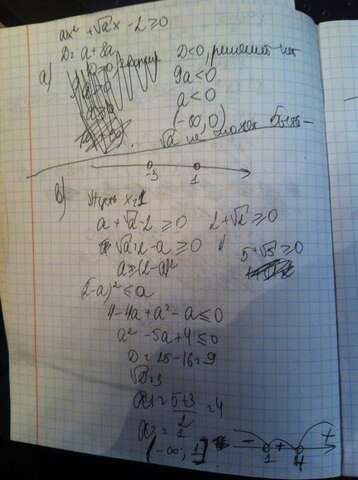 ax² + √a x - 2 ≥ 0
D = a + 8a
D<0, решений нет
a)
9a<0
a<0
(-∞, 0)
√a не может быть -
-3 1
б)
пусть x=1
a + √a - 2 ≥ 0
2 + √2 ≥ 0
√a ≥ 2 - a ≥ 0
5 + √5 ≥ 0
a ≥ (2-a)²
(2-a)² ≤ a
4 - 4a + a² - a ≤ 0
a² - 5a + 4 ≤ 0
D = 25 - 16 = 9
√D = 3
x₁ = 5+3/2 = 4
x₂ = 1
(-∞, 1]
- + +
1 4